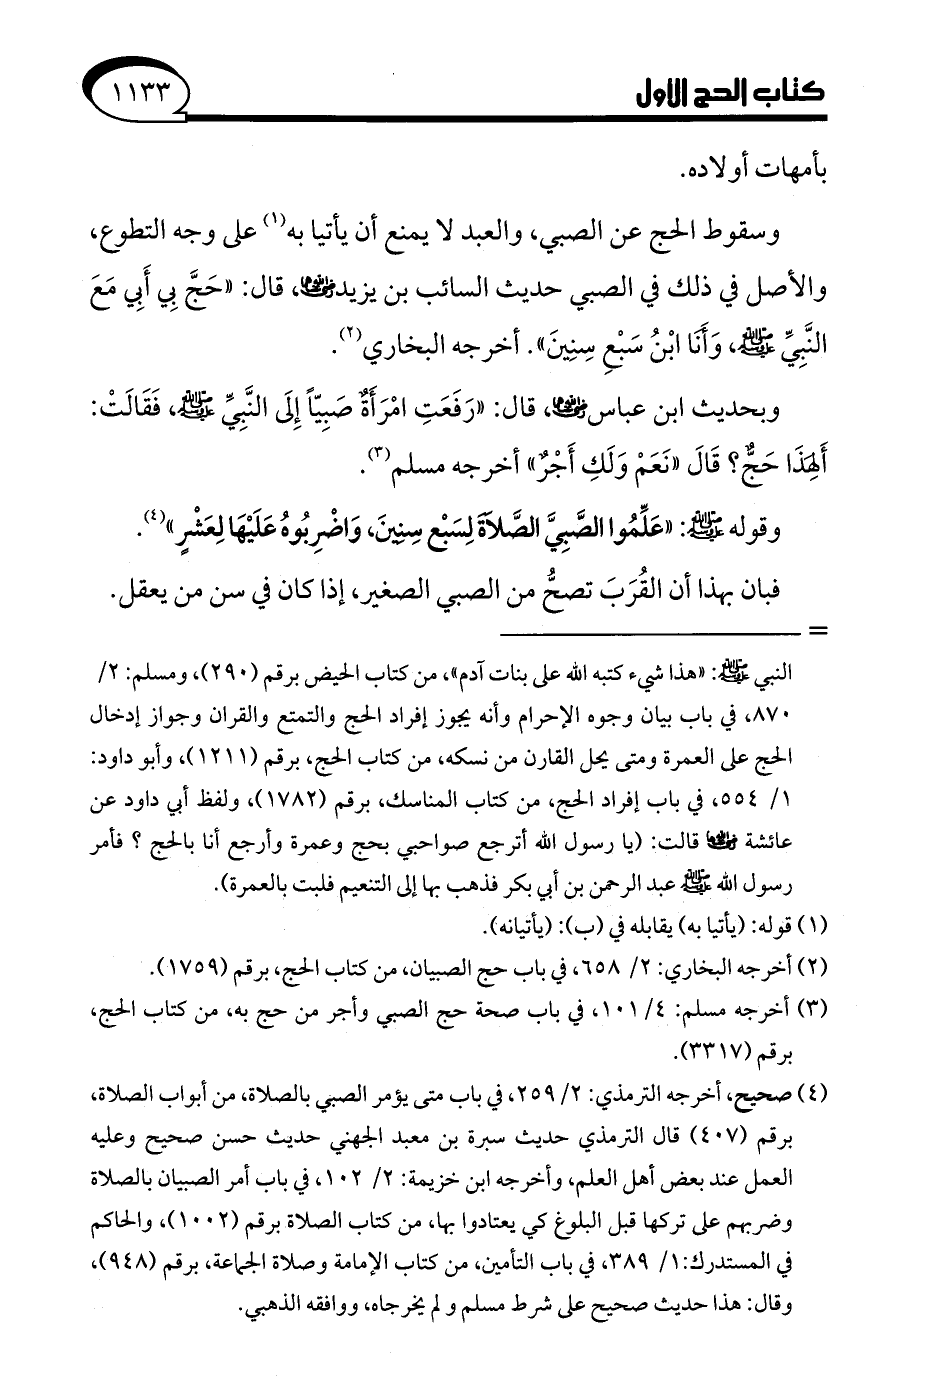 كتاب الحج الأول
١١٣٣
بأمهات أولاده.
وسقوط الحج عن الصبي، والعبد لا يمنع أن يأتيا به(١) على وجه التطوع،
والأصل في ذلك في الصبي حديث السائب بن يزيد رضي الله عنه، قال: «حَجَّ بِي أَبِي مَعَ
النَّبِيِّ ﷺ، وَأَنَا ابْنُ سَبْعِ سِنِينَ». أخرجه البخاري(٢).
وبحديث ابن عباس رضي الله عنهما، قال: «رَفَعَتِ امْرَأَةٌ صَبِيّاً إِلَى النَّبِيِّ ﷺ، فَقَالَتْ:
أَلِهَذَا حَجٌّ؟ قَالَ «نَعَمْ وَلَكِ أَجْرٌ» أخرجه مسلم(٣).
وقوله ﷺ: «عَلِّمُوا الصَّبِيَّ الصَّلَاةَ لِسَبْعِ سِنِينَ، وَاضْرِبُوهُ عَلَيْهَا لِعَشْرٍ»(٤).
فبان بهذا أن القُرَبَ تصحُّ من الصبي الصغير، إذا كان في سن من يعقل.
=
النبي ﷺ: «هذا شيء كتبه الله على بنات آدم»، من كتاب الحيض برقم (٢٩٠)، ومسلم: ٢/
٨٧٠، في باب بيان وجوه الإحرام وأنه يجوز إفراد الحج والتمتع والقران وجواز إدخال
الحج على العمرة ومتى يحل القارن من نسكه، من كتاب الحج، برقم (١٢١١)، وأبو داود:
١/ ٥٥٤، في باب إفراد الحج، من كتاب المناسك، برقم (١٧٨٢)، ولفظ أبي داود عن
عائشة رضي الله عنها قالت: (يا رسول الله أترجع صواحبي بحج وعمرة وأرجع أنا بالحج ؟ فأمر
رسول الله ﷺ عبد الرحمن بن أبي بكر فذهب بها إلى التنعيم فلبت بالعمرة).
(١) قوله: (يأتيا به) يقابله في (ب): (يأتيانه).
(٢) أخرجه البخاري: ٢/ ٦٥٨، في باب حج الصبيان، من كتاب الحج، برقم (١٧٥٩).
(٣) أخرجه مسلم: ٤/ ١٠١، في باب صحة حج الصبي وأجر من حج به، من كتاب الحج،
برقم (٣٣١٧).
(٤) صحيح، أخرجه الترمذي: ٢/ ٢٥٩، في باب متى يؤمر الصبي بالصلاة، من أبواب الصلاة،
برقم (٤٠٧) قال الترمذي حديث سبرة بن معبد الجهني حديث حسن صحيح وعليه
العمل عند بعض أهل العلم، وأخرجه ابن خزيمة: ٢/ ١٠٢، في باب أمر الصبيان بالصلاة
وضربهم على تركها قبل البلوغ كي يعتادوا بها، من كتاب الصلاة برقم (١٠٠٢)، والحاكم
في المستدرك:١/ ٣٨٩، في باب التأمين، من كتاب الإمامة وصلاة الجماعة، برقم (٩٤٨)،
وقال: هذا حديث صحيح على شرط مسلم و لم يخرجاه، ووافقه الذهبي.